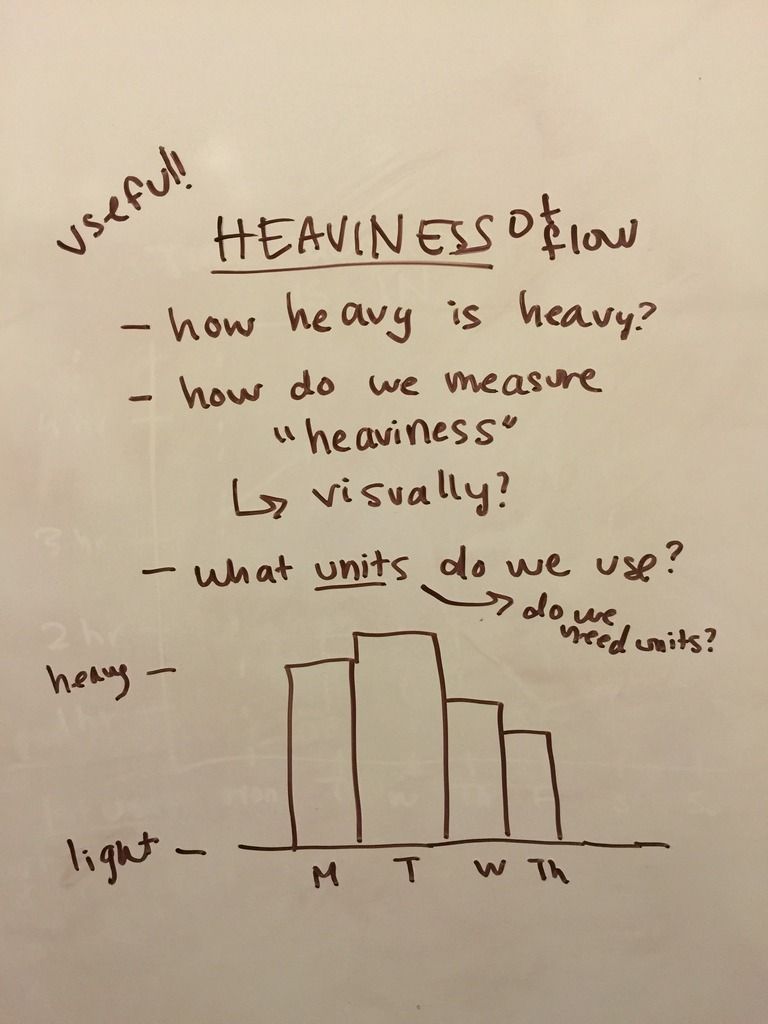 useful!!
HEAVINESS of flow
- how heavy is heavy?
- how do we measure
"heaviness"
↳ visually?
- what units do we use?
→ do we
need units?
heavy -
light -
M T W Th